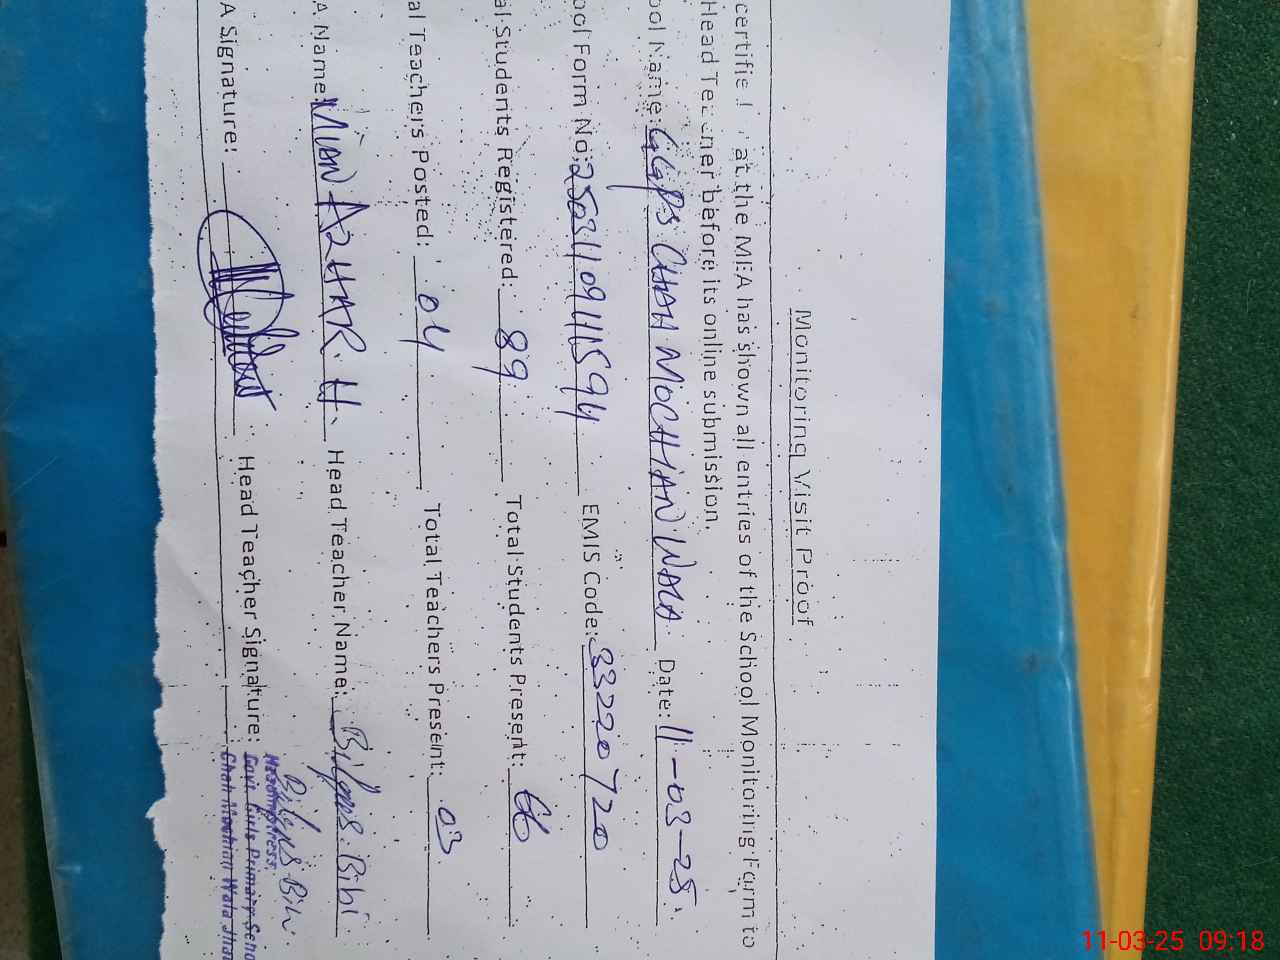 Monitoring Visit Proof
certifie at the MEA has shown all entries of the School Monitoring Form to
Head Teacher before its online submission.
ool Name: GGPS CHAH MOCHIAN WALA Date: 11-03-25
ool Form No: 250311094111594 EMIS Code: 33220720
al Students Registered: 89 Total Students Present: 66
al Teachers Posted: 04 Total Teachers Present: 03
A Name: MIAN AZHAR H. Head Teacher Name: Bilqos Bibi
A Signature: Head Teacher Signature:
Headmistress
Govt Girls Primary Scho
Chah Mochian Wala Jhan
11-03-25 09:18